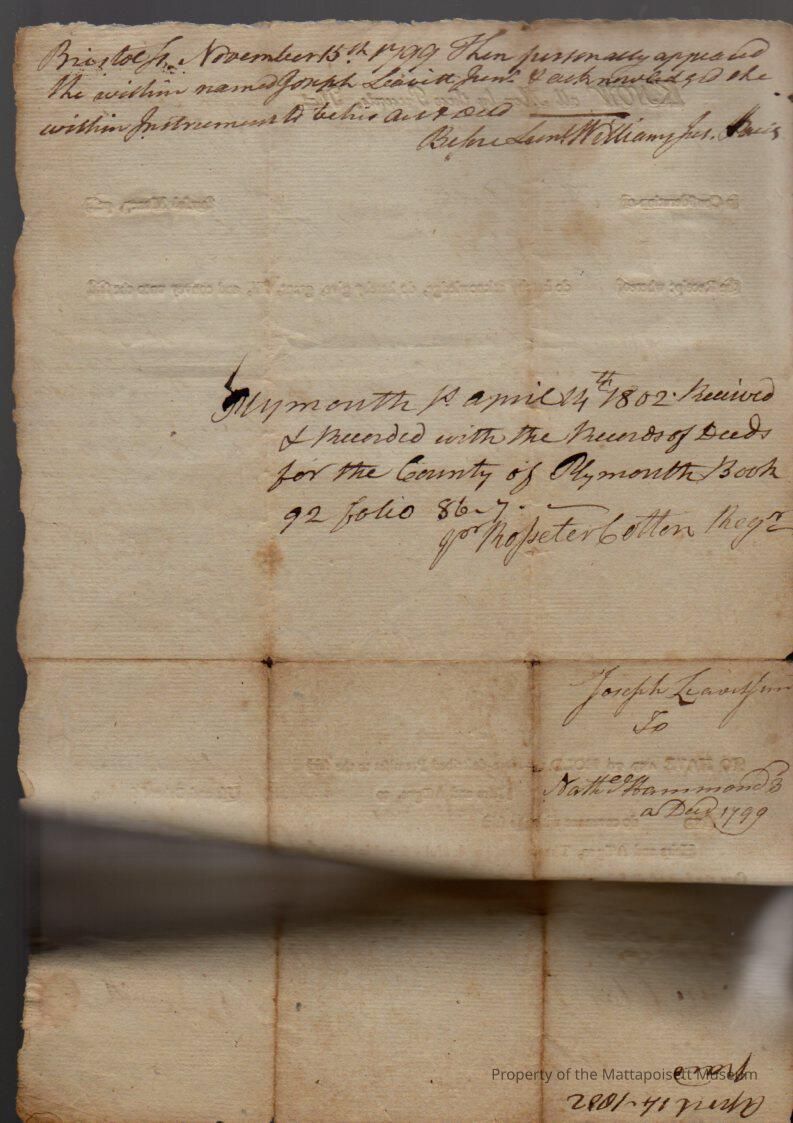 Bristol Ss. November 15th 1799 Then personally appeared
the within named Joseph Leavitt Junr. & acknowledged the
within Instrument to be his act & deed
Before Williams Jus. Pacis
Plymouth ss april 14th 1802. Received
& Recorded with the Records of Deeds
for the County of Plymouth Book
92 folio 86-7.
pr Rosseter Cotton Regr
Joseph Leavitt Jun
To
Nathl Hammond 3
a Deed 1799
Property of the Mattapoisett Museum
April 14-1802